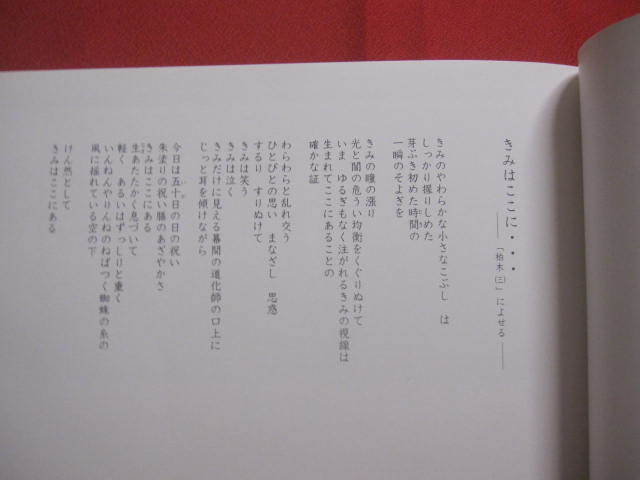 きみはここに・・・
――「柏木(三)」によせる――
きみのやわらかな小さなこぶし は
しっかり握りしめた
芽ぶき初めた時間の
一瞬のそよぎを
きみの瞳の漲り
光と闇の危うい均衡をくぐりぬけて
いま ゆるぎもなく注がれるきみの視線は
生まれてここにあることの
確かな証
わらわらと乱れ交う
ひとびとの思い まなざし 思惑
するり すりぬけて
きみは笑う
きみは泣く
きみだけに見える幕間の道化師の口上に
じっと耳を傾けながら
今日は五十日の日の祝い
朱塗りの祝い膳のあざやかさ
きみはここにある
生あたたかく息づいて
軽く あるいはずっしりと重く
いんねんやりんねのねばつく蜘蛛の糸の
風に揺れている空の下
けん然として
きみはここにある